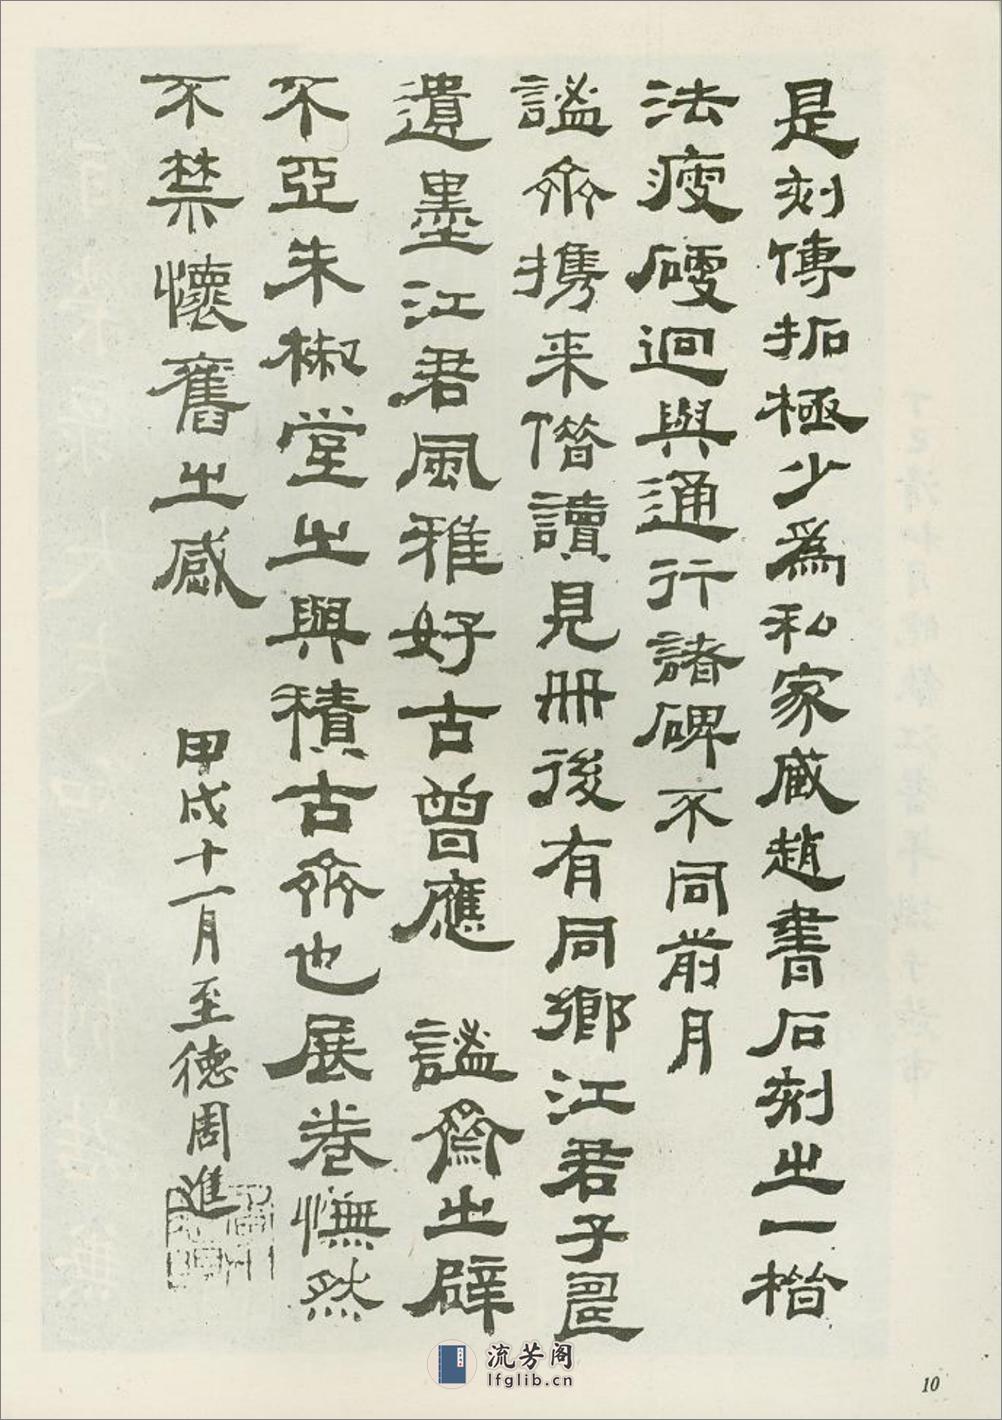 是刻傳拓極少爲私家藏趙書石刻之一楷
法瘦硬迴與通行諸碑不同前月
謐齋攜来借讀見冊後有同鄉江君子
遺墨江君風雅好古曾應 謐齋之辟
不亞朱椒堂之與積古齋也展卷憮然
不禁懷舊之感
甲戌十一月至德周進
流芳阁
lfglib.cn
10